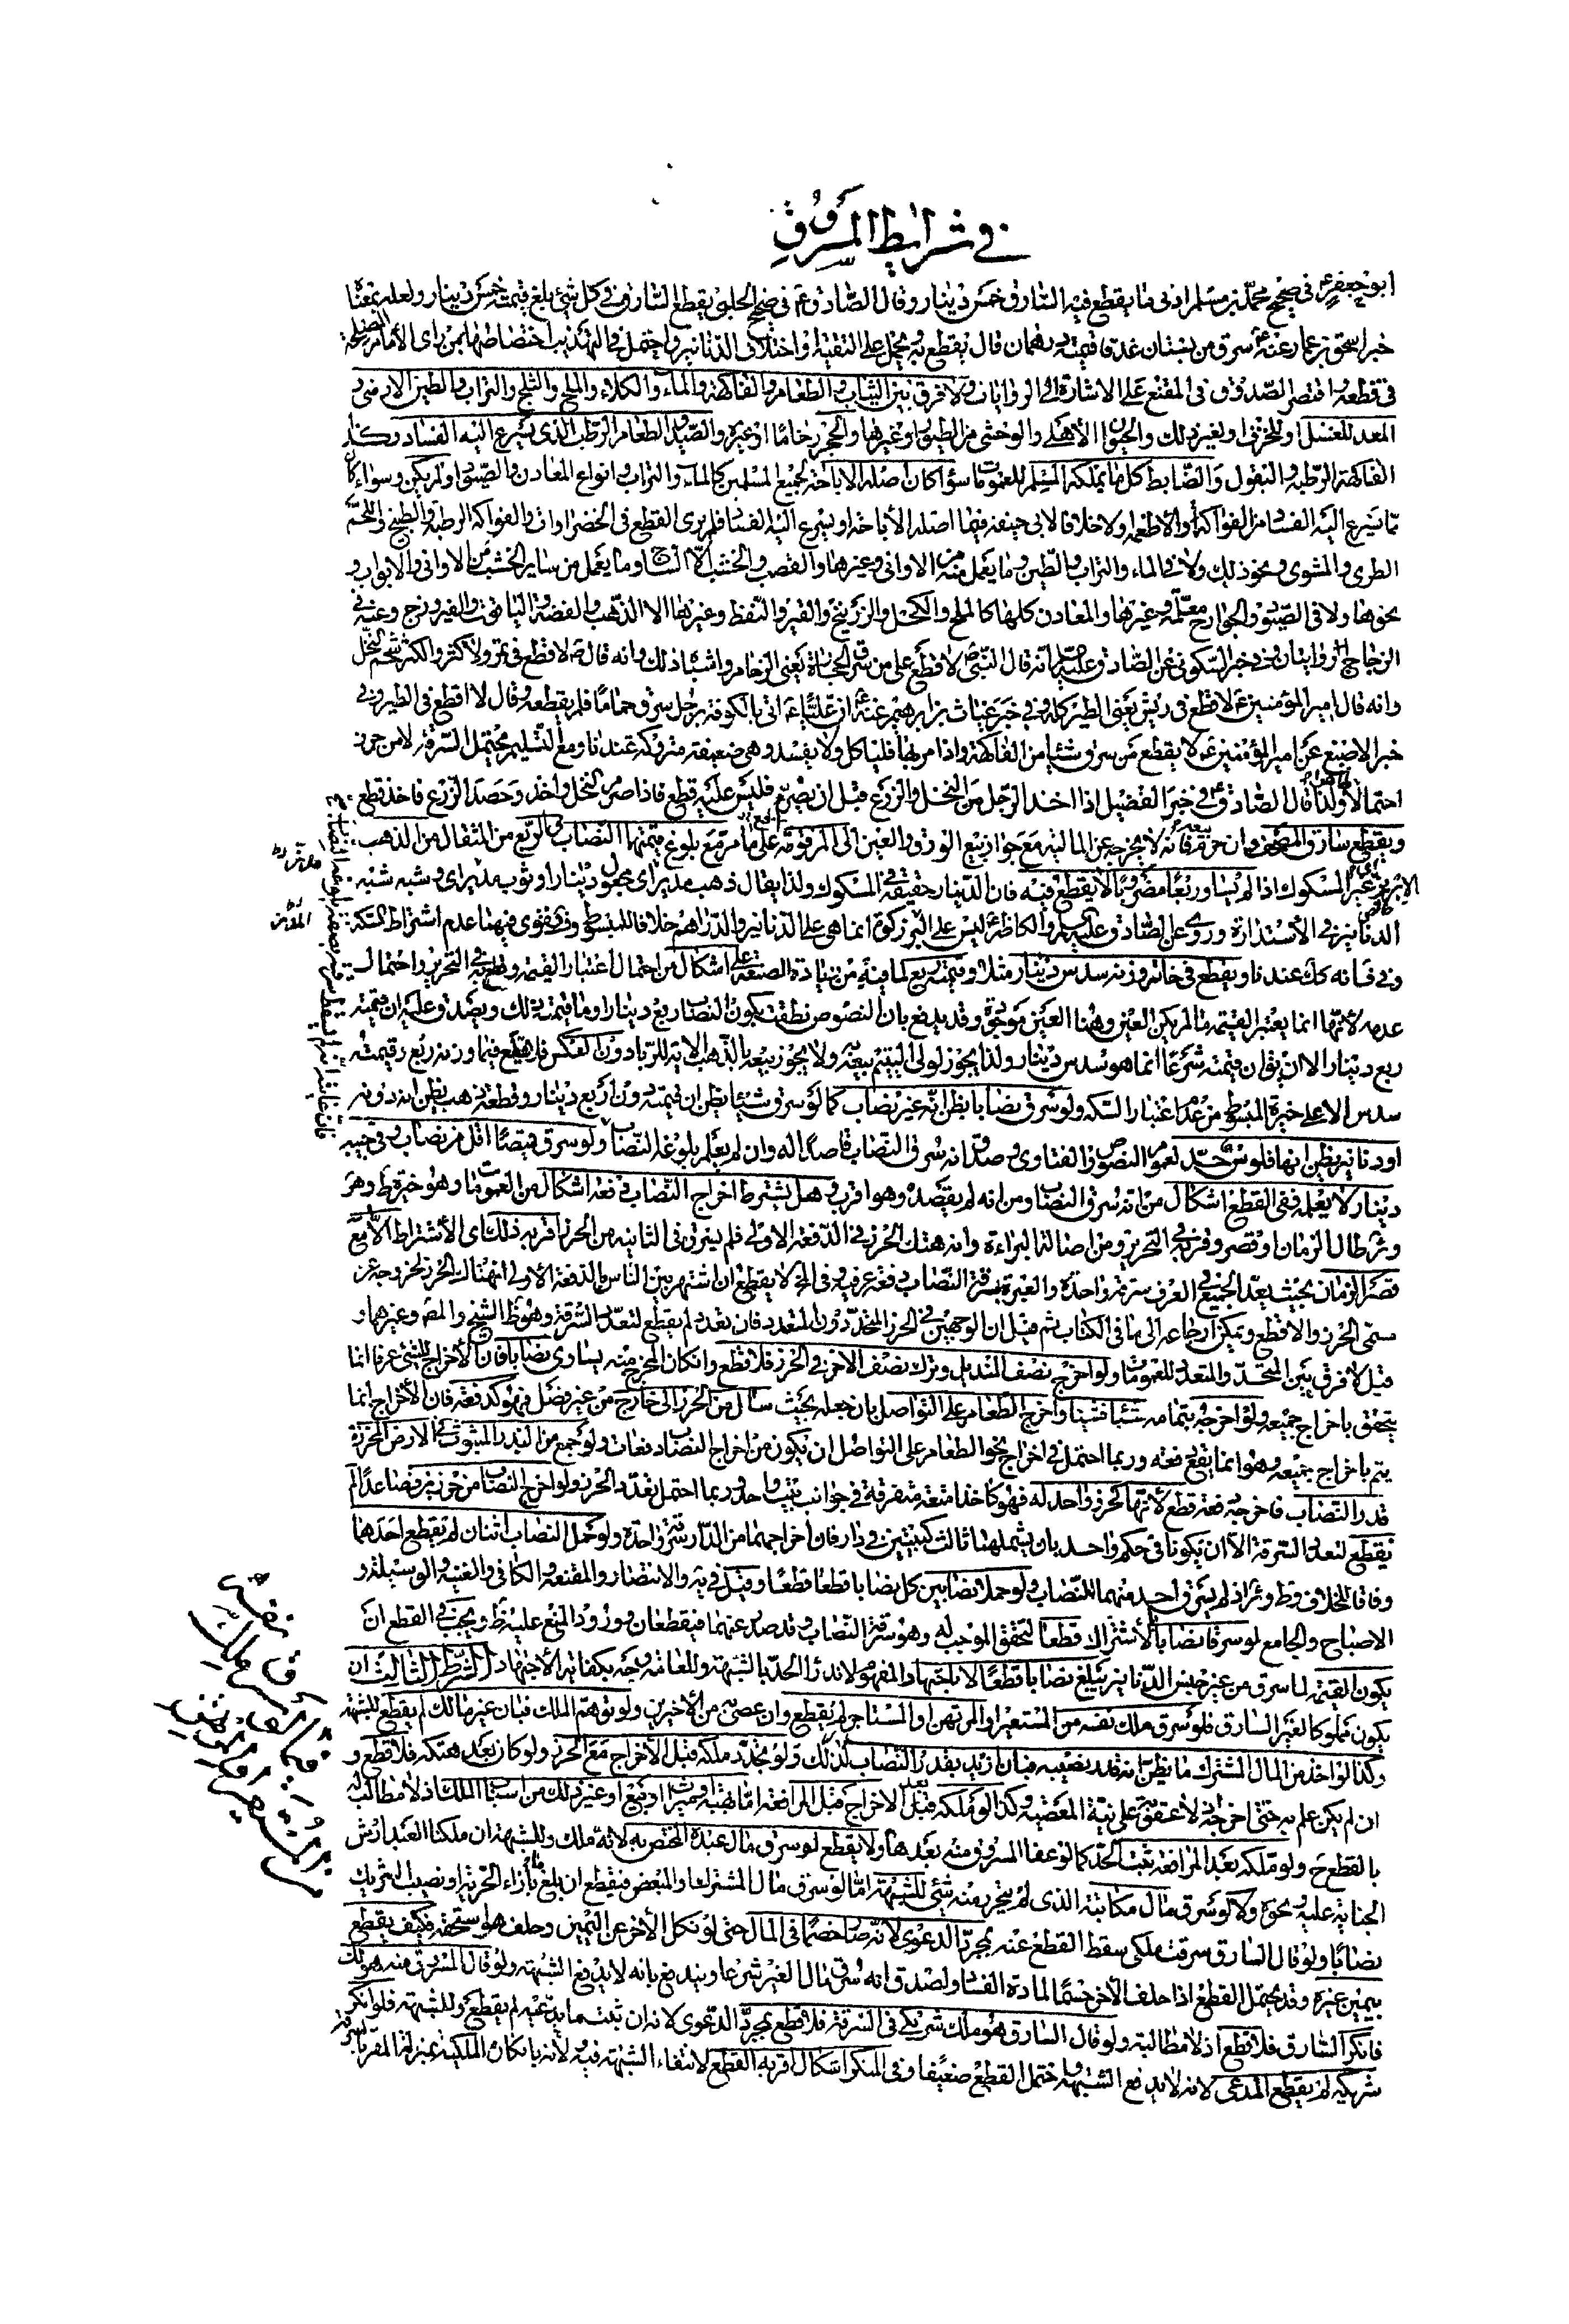 في شرايط المسروق
ابو جعفر ع في صحيح محمد بن مسلم ادنى ما يقطع فيه السارق خمس دينار وقال الصادق ع في صحيح الحلبي يقطع السارق في كل شيء بلغ قيمته خمس دينار ولعله بمعناها
خبر اسحق بن عمار عنه ع سرق من بستان عذقا قيمته درهمان قال يقطع به ويحمل على التقية او اختلاف الدنانير واحتمل في التهذيب اختصاصها بمن راى الامام المصلحة
في قطعه واقتصر الصدوق في المقنع على الاشارة الى الروايات ولا فرق بين الثياب والطعام والفاكهة والماء والكلاء والملح والثلج والتراب والطين الارمني و
المعد للغسل او للخزف او لغير ذلك والحيوان الاهلي والوحشي من الطيور او غيرها والحجر رخاما او غيره والصيد والطعام الرطب الذي يسرع اليه الفساد وكذا
الفاكهة الرطبة والبقول والضابط كل ما يملكه المسلم للعمومات سواء كان اصله الاباحة لجميع المسلمين كالماء والتراب وانواع المعادن والصيود او لم يكن وسواء كان
مما يسرع اليه الفساد من الفواكه والاطعمة اولا خلافا لابي حنيفة فيما اصله الاباحة او يسرع اليه الفساد فلم ير القطع في الخضراوات والفواكه الرطبة والطبيخ واللحم
الطري والمشوي ونحو ذلك ولا في الماء والتراب والطين وما يعمل منه من الاواني وغيرها والقصب والخشب الا الساج وما يعمل من ساير الخشب من الاواني والابواب و
نحوها ولا في الصيود والجوارح معلمة وغيرها والمعادن كلها كالملح والكحل والزرنيخ والقير والنفط وغيرها الا الذهب والفضة والياقوت والفيروزج وعنه في
الزجاج روايتان وفي خبر السكوني عن الصادق عليه السلم انه قال النبي ص لا قطع على من سرق الحجارة يعني الرخام واشباه ذلك وانه قال ص لا قطع في ثمر ولا كثر والكثر شحم النخل
وانه قال امير المؤمنين ع لا قطع في ريش يعني الطير كله وفي خبر غياث بن ابرهيم عنه ع ان عليا ع اتى بالكوفة برجل سرق حماما فلم يقطعه وقال لا اقطع في الطير وفي
خبر الاصبغ عن امير المؤمنين ع لا يقطع من سرق شيئا من الفاكهة واذا مر بها فلياكل ولا يفسد وهي ضعيفة متروكة عندنا ومع التسليم محتمل السرقة لا من حرز
احتمالا ولذا قال الصادق ع في خبر الفضيل اذا اخذ الرجل من النخل والزرع قبل ان يصرم فليس عليه قطع فاذا صرم النخل واخذ وحصد الزرع فاخذ قطع
ويقطع سارق المصحف وان حرم بيعه فانه لا يخرجه عن المالية مع جواز بيع الورق والعين الى المرقومة على ما مر مع بلوغ قيمتها النصاب والربع من المثقال من الذهب
الابريز غير المسكوك اذا لم يساو ربعا مضروبا لا يقطع فيه فان الدينار حقيقة في المسكوك ولذا يقال ذهب مدبر اي مجعول دينارا وثوب مدبر اي وشيه شبه
الدنانير في الاستدارة وروي عن الصادق عليه السلم والكاظم ع ليس على التبر زكوة انما هي على الدنانير والدراهم خلافا للمبسوط وفي فحوى فيهما عدم اشتراط السكة
وفي ف انه كك عندنا ويقطع في خاتم وزنه سدس دينار مثلا وقيمته ربع لما فيه من زيادة الصنعة على اشكال من احتمال اعتبار القيمة وقطع به في التحرير واحتمال
عدمه لانها انما يعتبر القيمة ما لم يكن العين وهنا العين موجودة وقد يدفع بان النصوص نطقت بكون النصاب ربع دينار او ما قيمته ذلك ويصدق عليه ان قيمته
ربع دينار الا ان يقال ان قيمته شرعا انما هو سدس دينار ولذا يجوز لولي اليتيم بيعه به ولا يجوز بيعه بالذهب الا به للربا دون العكس فلا يقطع فيما وزنه ربع وقيمته
سدس الا على خيرة المبسوط من عدم اعتبار السكة ولو سرق نصابا يظن انه غير نصاب كما لو سرق شيئا يظن ان قيمته دون ربع دينار وقطعة ذهب يظن انه دونه
او دنانير يظن انها فلوس حد لعموم النصوص والفتاوى وصدق انه سرق النصاب قاصدا له وان لم يعلم بلوغه النصاب ولو سرق قميصا اقل من نصاب وفي جيبه
دينار لا يعلمه ففي القطع اشكال من انه سرق النصاب ومن انه لم يقصده وهو اقرب وهل يشترط اخراج النصاب دفعة اشكال من العمومات وهو خيرة ط وهر
وئر طال الزمان او قصر وقربه في التحرير ومن اصالة البراءة وانه هتك الحرز في الدفعة الاولى فلم يسرق في الثانية من الحرز اقربه ذلك اي الاشتراط الا مع
قصر الزمان بحيث يعد الجميع في العرف سرقة واحدة والعبرة بسرقة النصاب دفعة عرفية وفي المخ لا يقطع ان اشتهر بين الناس بالدفعة الاولى انهتاك الحرز لخروجه عن
مسمى الحرز والا قطع ويمكن ارجاعه الى ما في الكتاب ثم قيل ان الوجهين في الحرز المتحد دون المتعدد فان تعدد لم يقطع لتعدد السرقة وهو ظ الشيخ والمص وغيرهما و
قيل لا فرق بين المتحد والمتعدد للعمومات ولو اخرج نصف المنديل وترك نصفه الاخر في الحرز فلا قطع وان كان المخرج منه يساوي نصابا فان الاخراج للشيء عرفا انما
يتحقق باخراج جميعه ولو اخرجه بتمامه شيئا فشيئا واخرج الطعام على التواصل بان جعله بحيث سال من الحرز الى خارج من غير فصل فهو كدفعة فان الاخراج انما
يتم باخراج جميعه وهو انما يقع دفعة وربما احتمل في اخراج نحو الطعام على التواصل ان يكون من اخراج النصاب دفعات ولو جمع من البذر المبثوث في الارض المحرزة
قدر النصاب فاخرجه دفعة قطع لانها كحرز واحد له فهو كاخذ امتعة متفرقة في جوانب بيت واحد وربما احتمل تعدد الحرز ولو اخرج النصاب من حرزين فصاعدا لم
يقطع لتعدد السرقة الا ان يكونا في حكم واحد بان يشملهما ثالث كبيتين في دار فان اخراجهما من الدار سرقة واحدة ولو حمل النصاب اثنان لم يقطع احدهما
وفاقا للخلاف وط وئر اذ لم يسرق احد منهما النصاب ولو حملا نصابين كل نصابا قطعا قطعا وقيل في يه والانتصار والمقنعة والكافي والغنية والوسيلة و
الاصباح والجامع لو سرقا نصابا بالاشتراك قطعا لتحقق الموجب له وهو سرقة النصاب وقد صدر عنهما فيقطعان وورود المنع عليه ظ ويجب في القطع ان
يكون القيمة لما سرق من غير جنس الدنانير يبلغ نصابا قطعا لا باجتهاد المقوم لاندراء الحد بالشبهة وللعامة وجه بكفاية الاجتهاد الشرط الثالث ان
يكون مملوكا لغير السارق فلو سرق ملك نفسه من المستعير او المرتهن او المستاجر لم يقطع وان عصى به من الاخيرين ولو توهم الملك فبان غير مالك لم يقطع للشبهة
وكذا لو اخذ من المال المشترك ما يظن انه قدر نصيبه فبان ازيد بقدر النصاب لذلك ولو تجدد ملكه قبل الاخراج مع الحرز ولو كان بعد هتكه فلا قطع و
ان لم يكن علم به حتى اخرجه اذ لا عقوبة على نية المعصية وكذا لو ملكه بعد الاخراج قبل المرافعة اما بهبة او ميراث او بيع او غير ذلك من اسباب الملك اذ لا مطالب له
بالقطع ح ولو ملكه بعد المرافعة يثبت الحد كما لو عفا المسروق منه بعدها ولا يقطع لو سرق مال عبده المختص به لانه ملك وللشبهة ان ملكنا العبد ارش
الجناية عليه ونحوه ولا لو سرق مال مكاتبه الذي لم يتحرر منه شيء للشبهة اما لو سرق مال المشترك او المبعض فيقطع ان بلغ ما بازاء الحرية او نصيب الشريك
نصابا ولو قال السارق سرقت ملكي سقط القطع عنه بمجرد الدعوى لانه صار خصما في المال حتى لو نكل الاخر عن اليمين وحلف هو استحقه فكيف يقطع
بيمين غيره وقد يحتمل القطع اذا حلف الاخر حسما لمادة الفساد ولصدق انه سرق مال الغير شرعا ويندفع بانه لا يدفع الشبهة ولو قال المسروق منه هو لك
فانكر السارق فلا قطع اذ لا مطالبة ولو قال السارق هو ملك شريكي في السرقة فلا قطع بمجرد الدعوى لانه ان ثبت ما يدعيه لم يقطع وللشبهة فلو انكر
شريكه لم يقطع المدعي لانه لا يدفع الشبهة واحتمل القطع ضعيفا وفي المنكر اشكال اقربه القطع لانتفاء الشبهة فيه لانه بانكار الملكية بمنزلة المقر بالسرقة